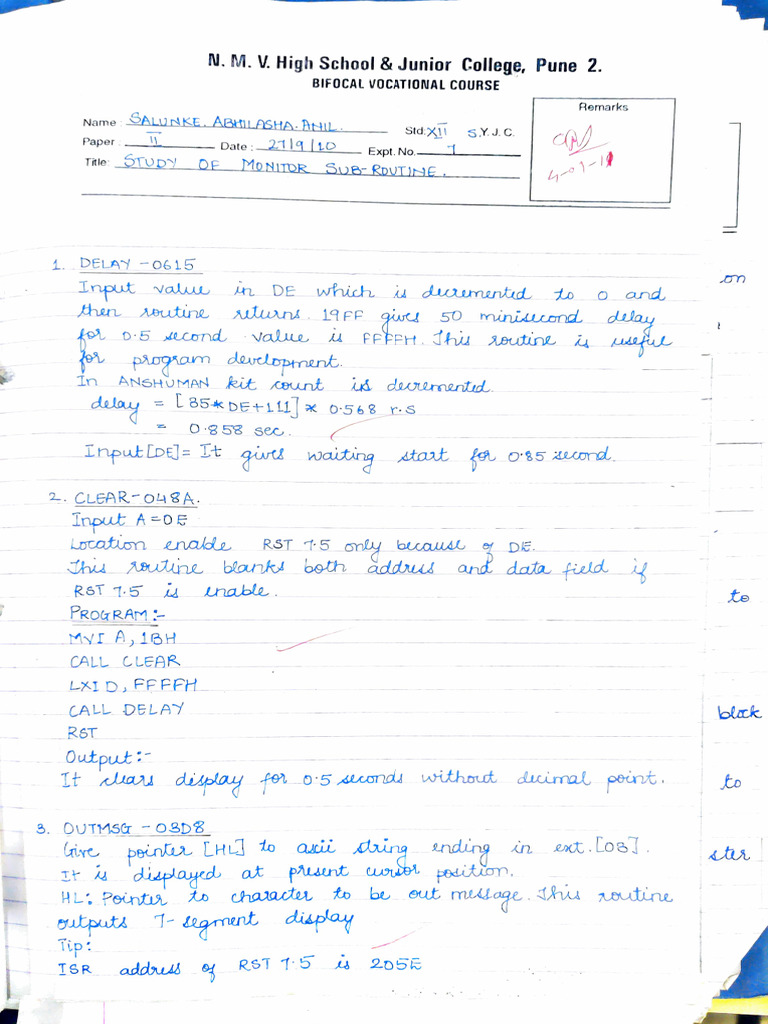 N. M. V. High School & Junior College, Pune 2.
BIFOCAL VOCATIONAL COURSE
Remarks
Name : SALUNKE. ABHILASHA. ANIL. Std: XII S.Y.J.C.
Paper : II Date : 27/9/10 Expt. No. 7
Title: STUDY OF MONITOR SUB-ROUTINE.
4-01-11
1. DELAY -0615
Input value in DE which is decremented to 0 and
then routine returns. 19FF gives 50 minisecond delay
for 0.5 second value is FFFFH. This routine is useful
for program development.
In ANSHUMAN kit count is decremented.
delay = [85*DE+111] * 0.568 r.s
= 0.858 sec.
Input [DE] = It gives waiting start for 0.85 second.
2. CLEAR-048A.
Input A = 0E
Location enable RST 7.5 only because of DE.
This routine blanks both address and data field if
RST 7.5 is enable.
PROGRAM:-
MVI A, 1BH
CALL CLEAR
LXI D, FFFFH
CALL DELAY
RST
Output:-
It clears display for 0.5 seconds without decimal point.
3. OUTMSG -03D8
Give pointer [HL] to ascii string ending in ext. [03].
It is displayed at present cursor position.
HL: Pointer to character to be out message. This routine
outputs 7-segment display
Tip:
ISR address of RST 7.5 is 205E
on
to
block
to
ster